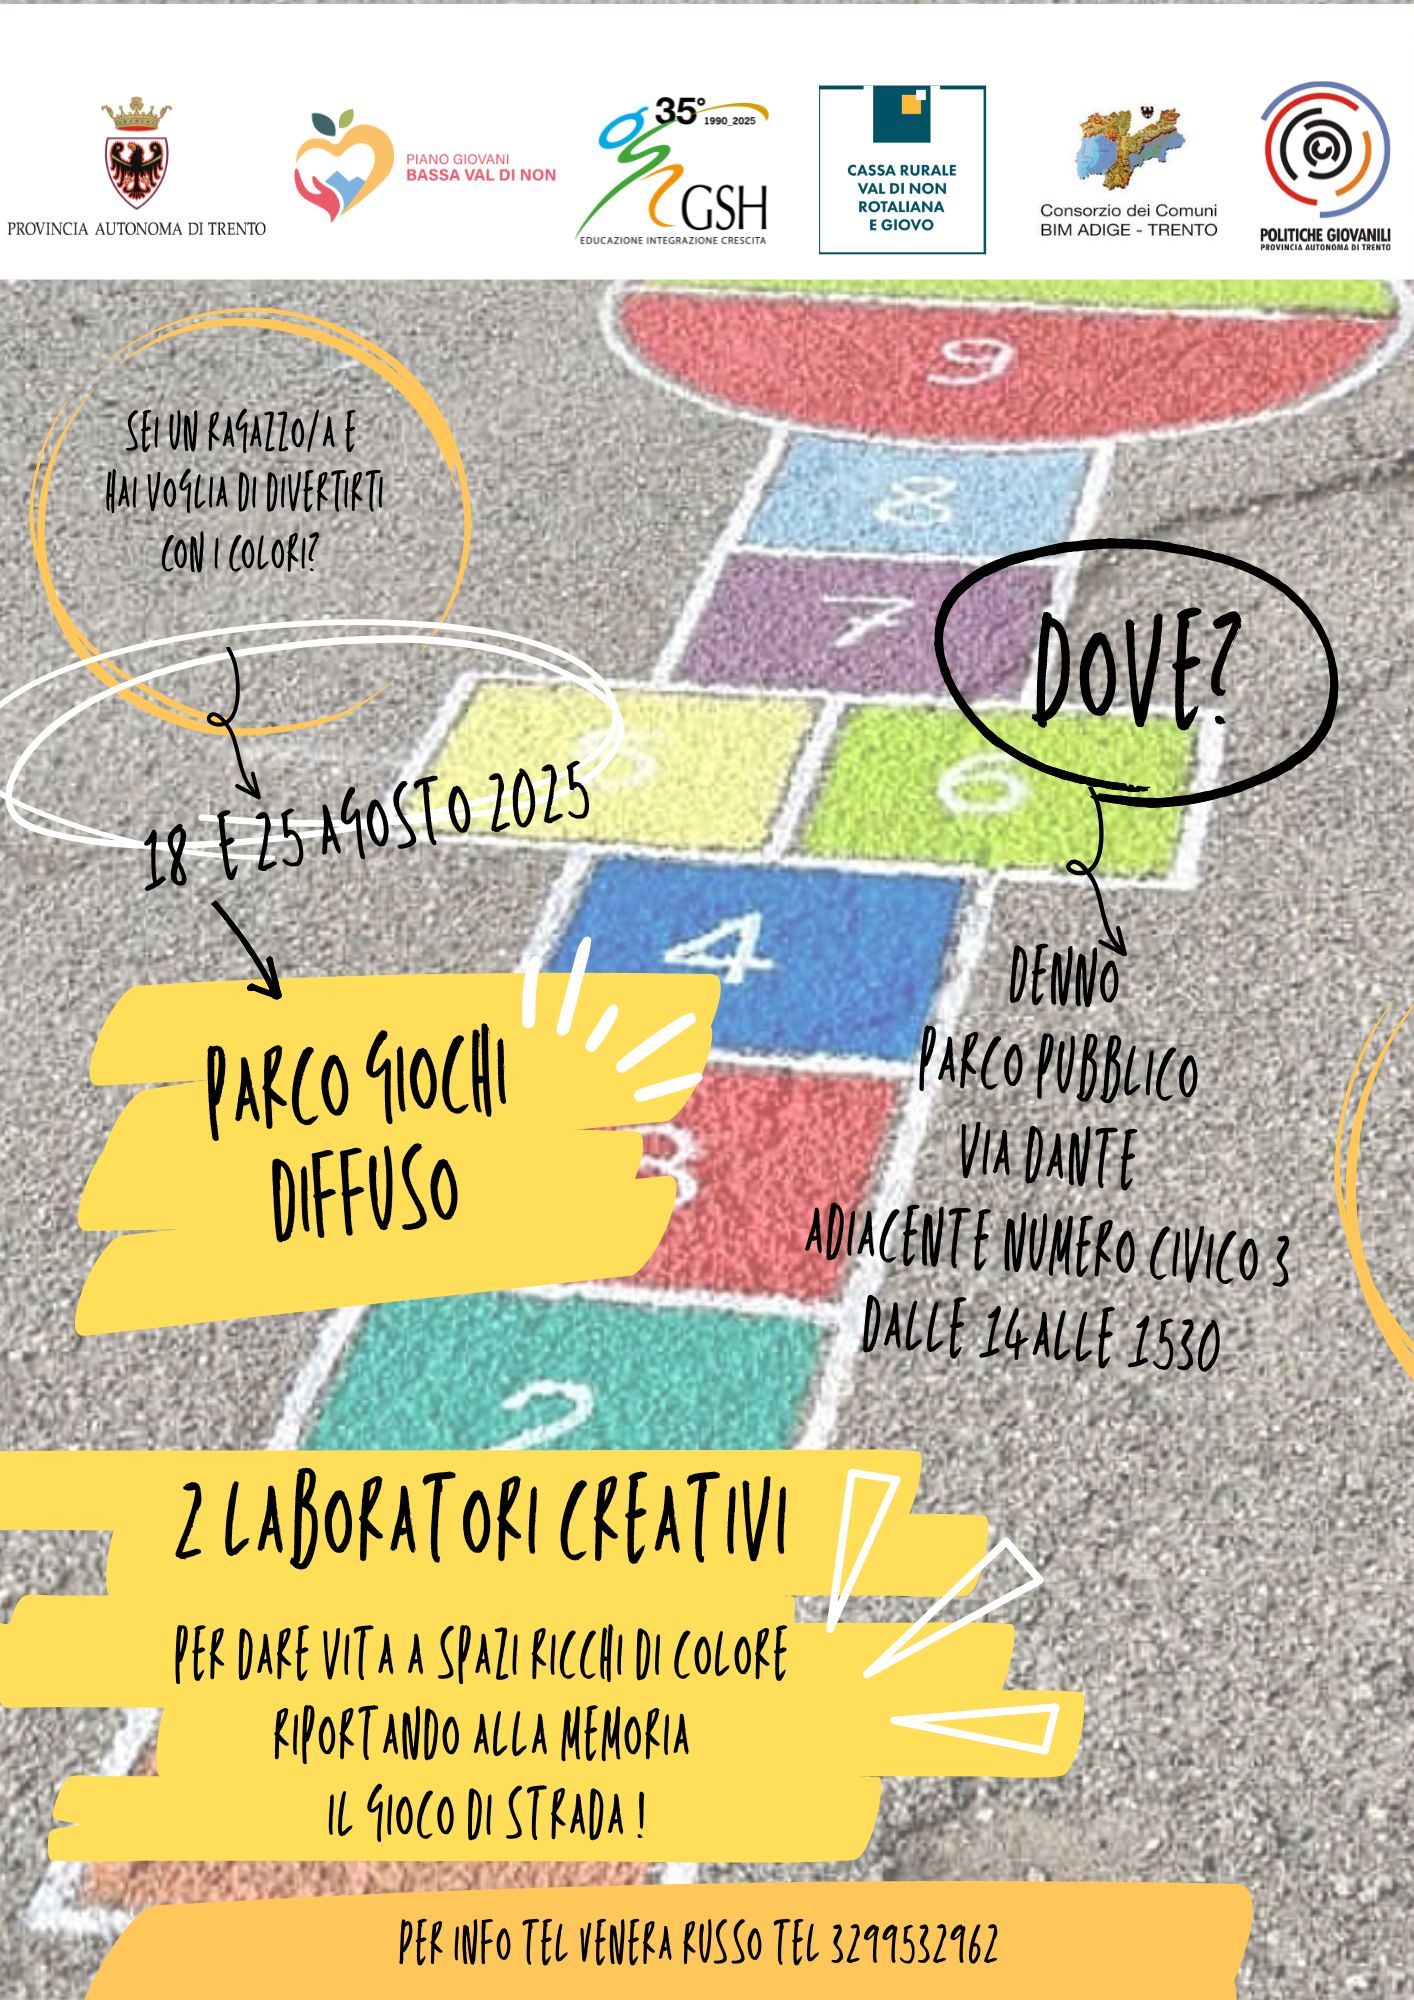 PROVINCIA AUTONOMA DI TRENTO
PIANO GIOVANI
BASSA VAL DI NON
35°
1990_2025
GSH
EDUCAZIONE INTEGRAZIONE CRESCITA
CASSA RURALE
VAL DI NON
ROTALIANA
E GIOVO
Consorzio dei Comuni
BIM ADIGE - TRENTO
POLITICHE GIOVANILI
PROVINCIA AUTONOMA DI TRENTO
9
SEI UN RAGAZZO/A E
HAI VOGLIA DI DIVERTIRTI
CON I COLORI?
8
7
DOVE?
5
6
18 E 25 AGOSTO 2025
4
DENNO
PARCO PUBBLICO
VIA DANTE
ADIACENTE NUMERO CIVICO 3
DALLE 14 ALLE 1530
PARCO GIOCHI
DIFFUSO
3
2
2 LABORATORI CREATIVI
PER DARE VITA A SPAZI RICCHI DI COLORE
RIPORTANDO ALLA MEMORIA
IL GIOCO DI STRADA !
PER INFO TEL VENERA RUSSO TEL 3299532962